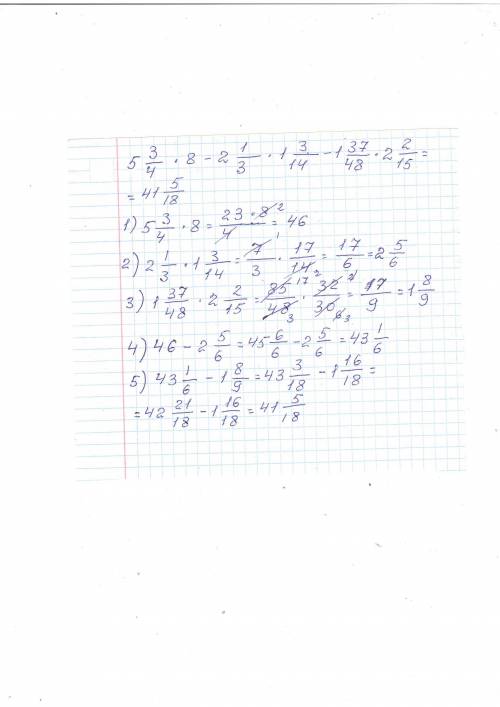 5 3/4 · 8 − 2 1/3 · 1 3/14 − 1 37/48 · 2 2/15 =
= 41 5/18
1) 5 3/4 · 8 = 23 · 8 2/4 = 46
2) 2 1/3 · 1 3/14 = 7 1/3 · 17/14 2 = 17/6 = 2 5/6
3) 1 37/48 · 2 2/15 = 85 17/48 3 · 32 2/30 6 3 = 17/9 = 1 8/9
4) 46 − 2 5/6 = 45 6/6 − 2 5/6 = 43 1/6
5) 43 1/6 − 1 8/9 = 43 3/18 − 1 16/18 =
= 42 21/18 − 1 16/18 = 41 5/18